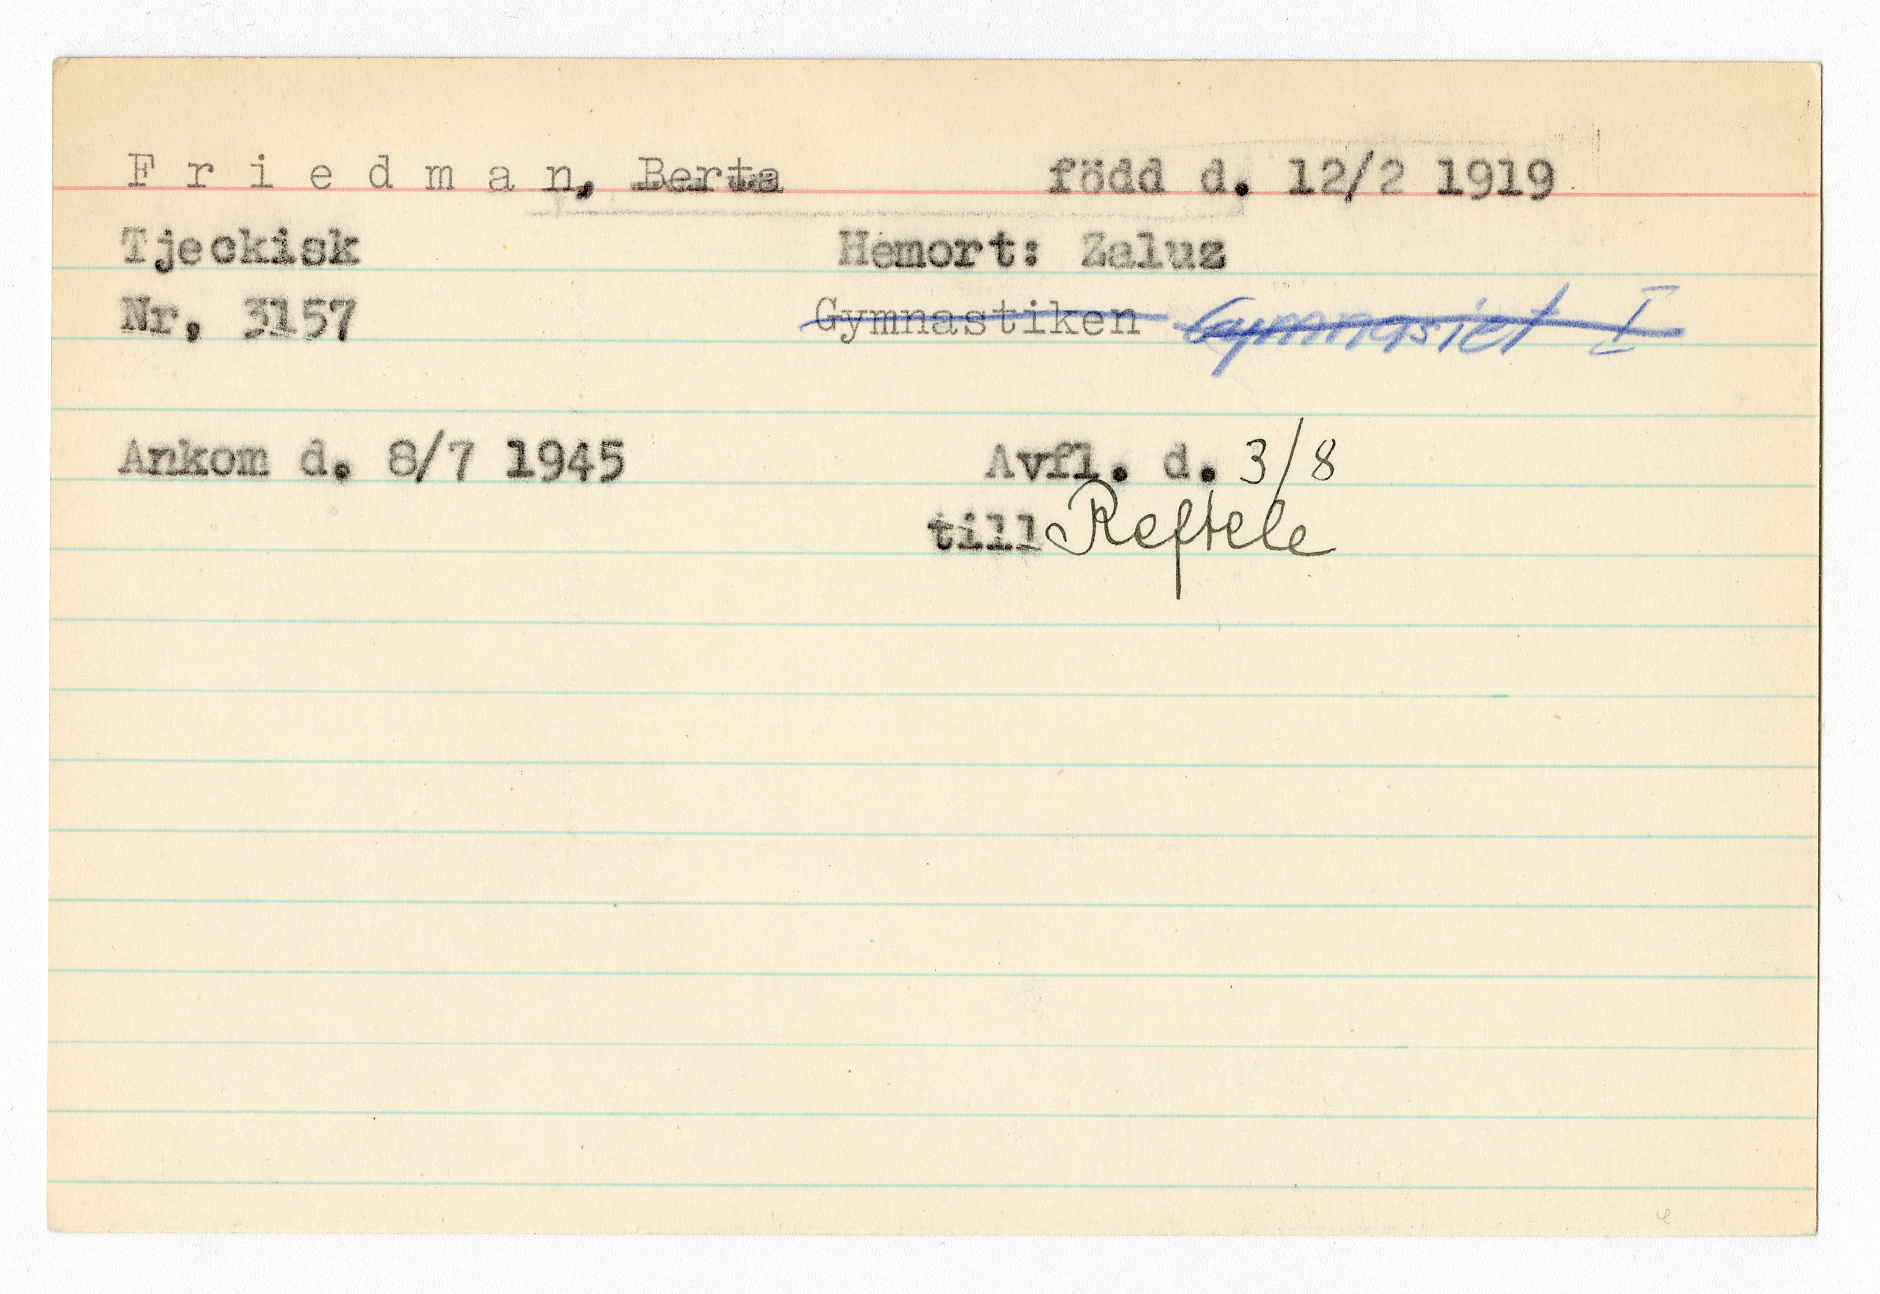 F r i e d m a n, Berta född d. 12/2 1919
Tjeckisk Hemort: Zaluz
Nr. 3157 Gymnastiken Gymnasiet I
Ankom d. 8/7 1945 Avfl. d. 3/8
till Reftele